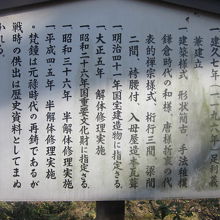 建久七年(一一九
兼建立
一建築様式 形状簡古 手法雄樸
鎌倉時代の和様、唐様折衷の代
表的禅宗様式、桁行三間、梁間
二間、袴腰付、入母屋造本瓦葺
一明治四十一年国宝建造物に指定さる。
一大正五年 解体修理実施
一昭和二十六年国重要文化財に指定さる。
一昭和三十六年 半解体修理実施
一平成四五年 半解体修理実施
一梵鐘は元禄時代の再鋳であるが
戦時の供出は歴史資料としてまぬ
がれる。